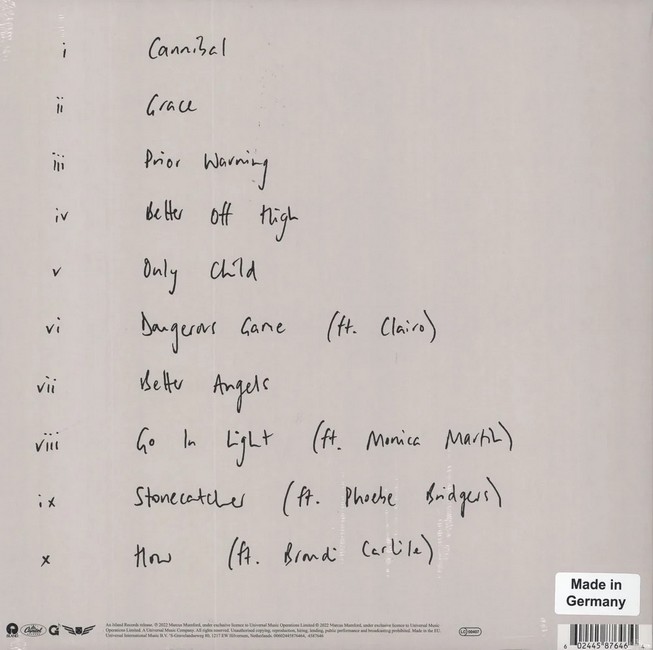 i Cannibal
ii Grace
iii Prior Warning
iv Better Off High
v Only Child
vi Dangerous Game (ft. Clairo)
vii Better Angels
viii Go In Light (ft. Monica Martin)
ix Stonecatcher (ft. Phoebe Bridgers)
x How (ft. Brandi Carlile)
Made in
Germany
ISLAND Capitol
An Island Records release. ℗ 2022 Marcus Mumford, under exclusive licence to Universal Music Operations Limited © 2022 Marcus Mumford, under exclusive licence to Universal Music
Operations Limited. A Universal Music Company. All rights reserved. Unauthorised copying, reproduction, hiring, lending, public performance and broadcasting prohibited. Made in the EU.
Universal International Music B.V.
LC 00407
6 02445 87646 4